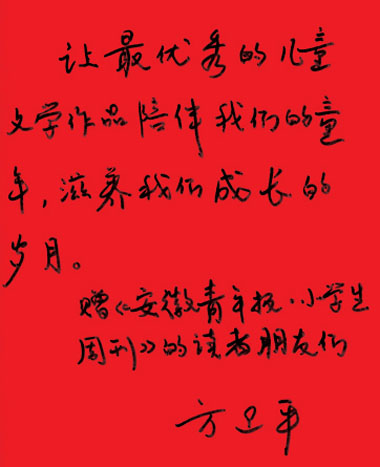 让最优秀的儿童
文学作品陪伴我们的童
年，滋养我们成长的
岁月。
赠《安徽青年报·小学生
周刊》的读者朋友们
方卫平